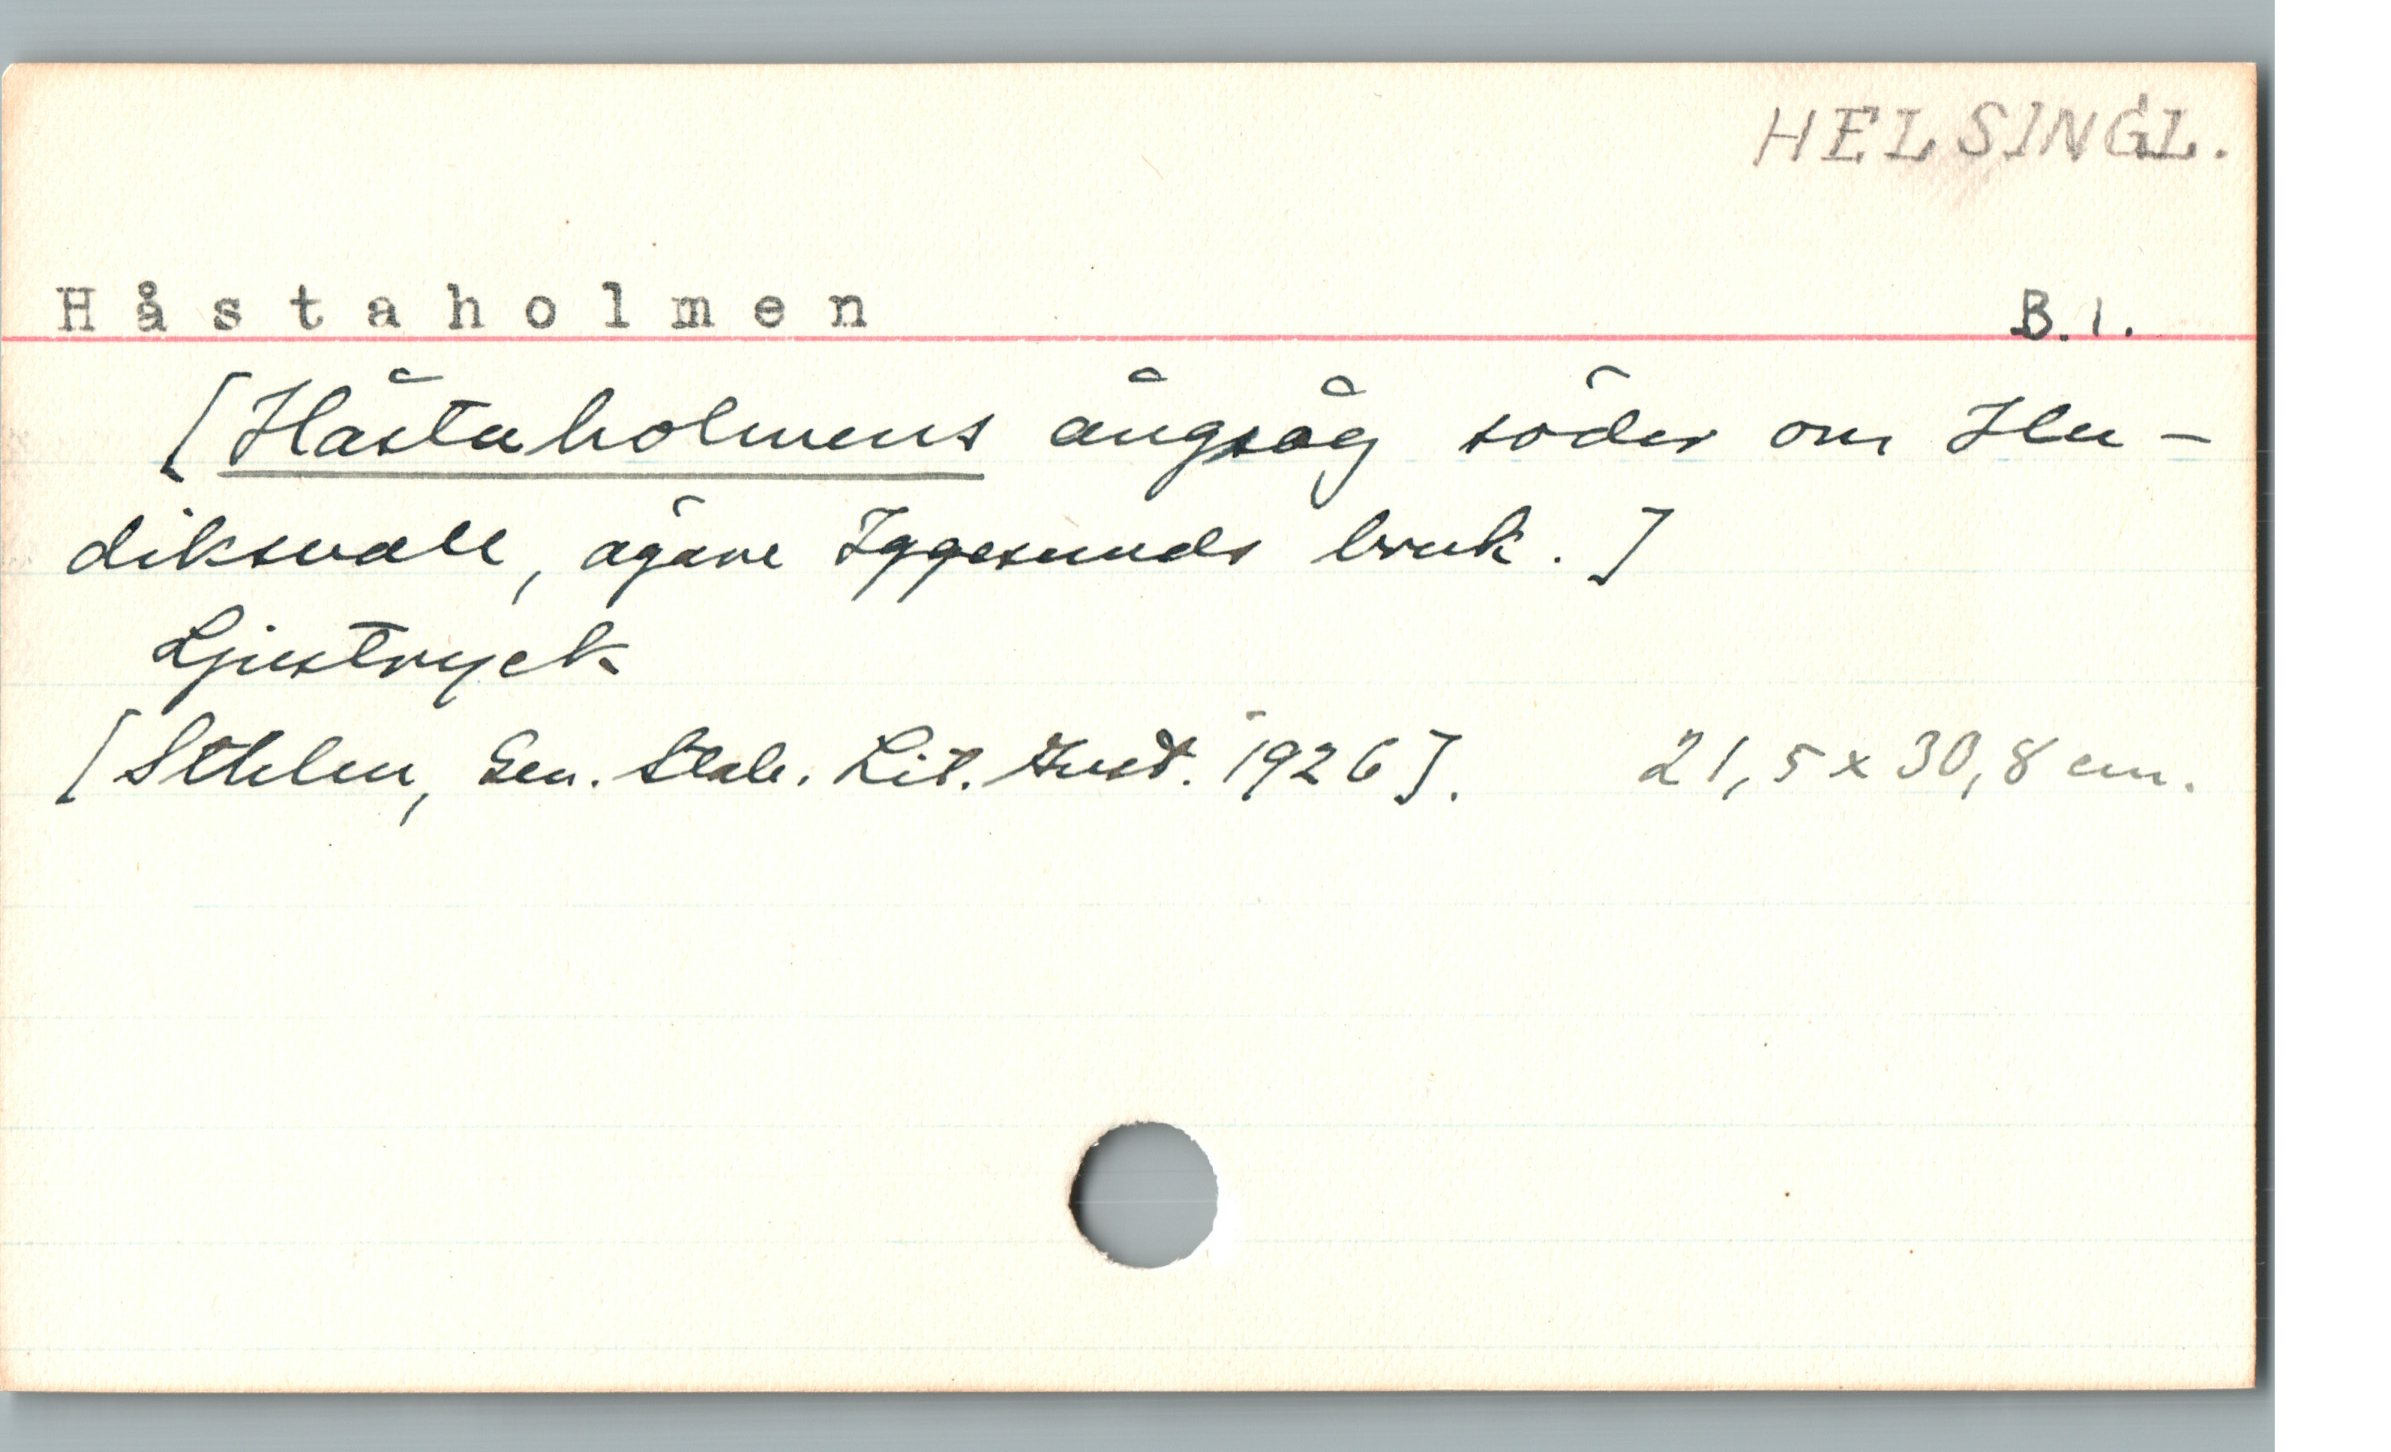 HELSINGL.
Håstaholmen B.1.
[Håstaholmens ångsåg söder om Hu-
diksvall, ägare Iggesunds bruk.]
Ljustryck
[Sthlm, Gen. Stab. Lit. Inst. 1926]. 21,5 x 30,8 cm.